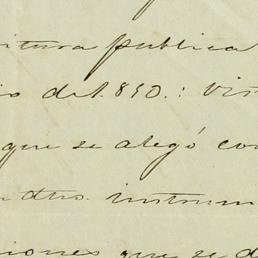 itura publica
o del.850.: Vis
que se alegó con
dho. instrum
iones que se d